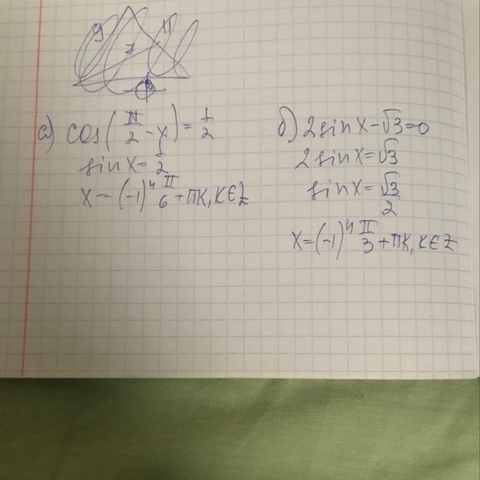 а) cos(π/2 - x) = 1/2
sin x = 1/2
x = (-1)ⁿ π/6 + πk, k ∈ Z
б) 2 sin x - √3 = 0
2 sin x = √3
sin x = √3/2
x = (-1)ⁿ π/3 + πk, k ∈ Z